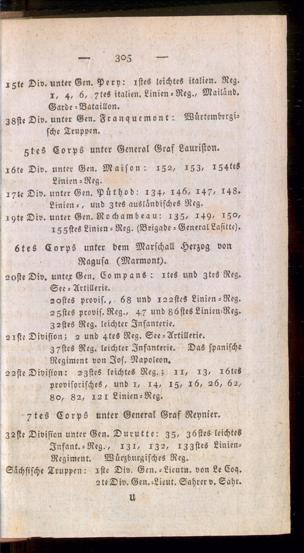 — 305 —
15te Div. unter Gen. Pery: 1stes leichtes italien. Reg.
1, 4, 6, 7tes italien. Linien-Reg., Mailänd.
Garde-Bataillon.
38ste Div. unter Gen. Franquemont: Würtembergi-
sche Truppen.
5tes Corps unter General Graf Lauriston.
16te Div. unter Gen. Maison: 152, 153, 154tes
Linien-Reg.
17te Div. unter Gen. Püthod: 134, 146, 147, 148.
Linien-, und 3tes ausländisches Reg.
19te Div. unter Gen. Rochambeau: 135, 149, 150,
155stes Linien-Reg. (Brigade-General Lafitte).
6tes Corps unter dem Marschall Herzog von
Ragusa (Marmont).
20ste Div. unter Gen. Compans: 1tes und 3tes Reg.
See-Artillerie.
20stes provis., 68 und 122stes Linien-Reg.
25stes provis. Reg., 47 und 86stes Linien-Reg.
32stes Reg. leichter Infanterie.
21ste Division; 2 und 4tes Reg. See-Artillerie.
37stes Reg. leichter Infanterie. Das spanische
Regiment von Jos. Napoleon.
22ste Division: 23stes leichtes Reg.; 11, 13, 16tes
provisorisches, und 1, 14, 15, 16, 26, 62,
80, 82, 121 Linien-Reg.
7tes Corps unter General Graf Reynier.
32ste Division unter Gen. Durutte: 35, 36stes leichtes
Infant.-Reg., 131, 132, 133stes Linien-
Regiment. Würzburgisches Reg.
Sächsische Truppen: 1ste Div. Gen.-Lieutn. von Le Coq.
2te Div. Gen.-Lieut. Sahrer v. Sahr.
U